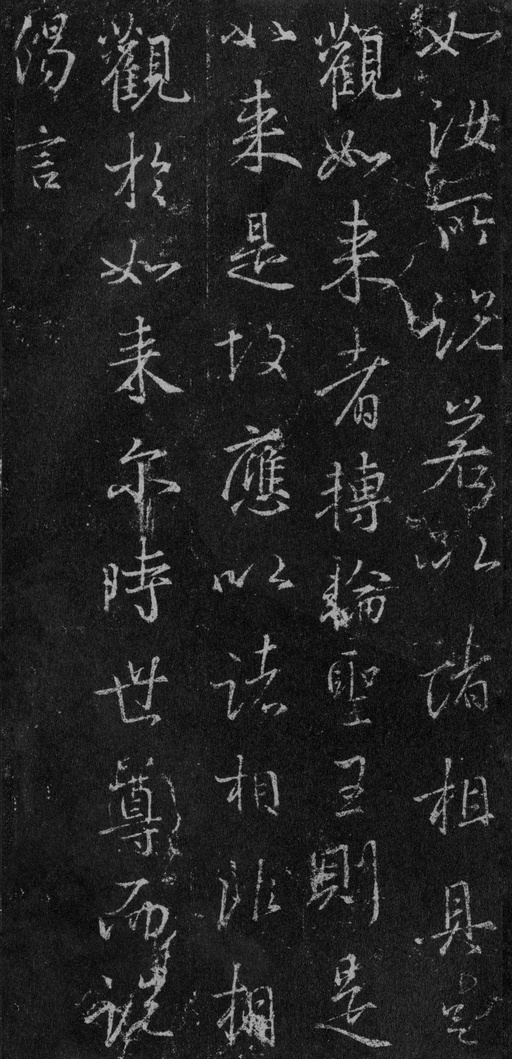 如汝所說若以諸相具足
觀如來者轉輪聖王則是
如來是故應以諸相非相
觀於如來尔時世尊而說
偈言